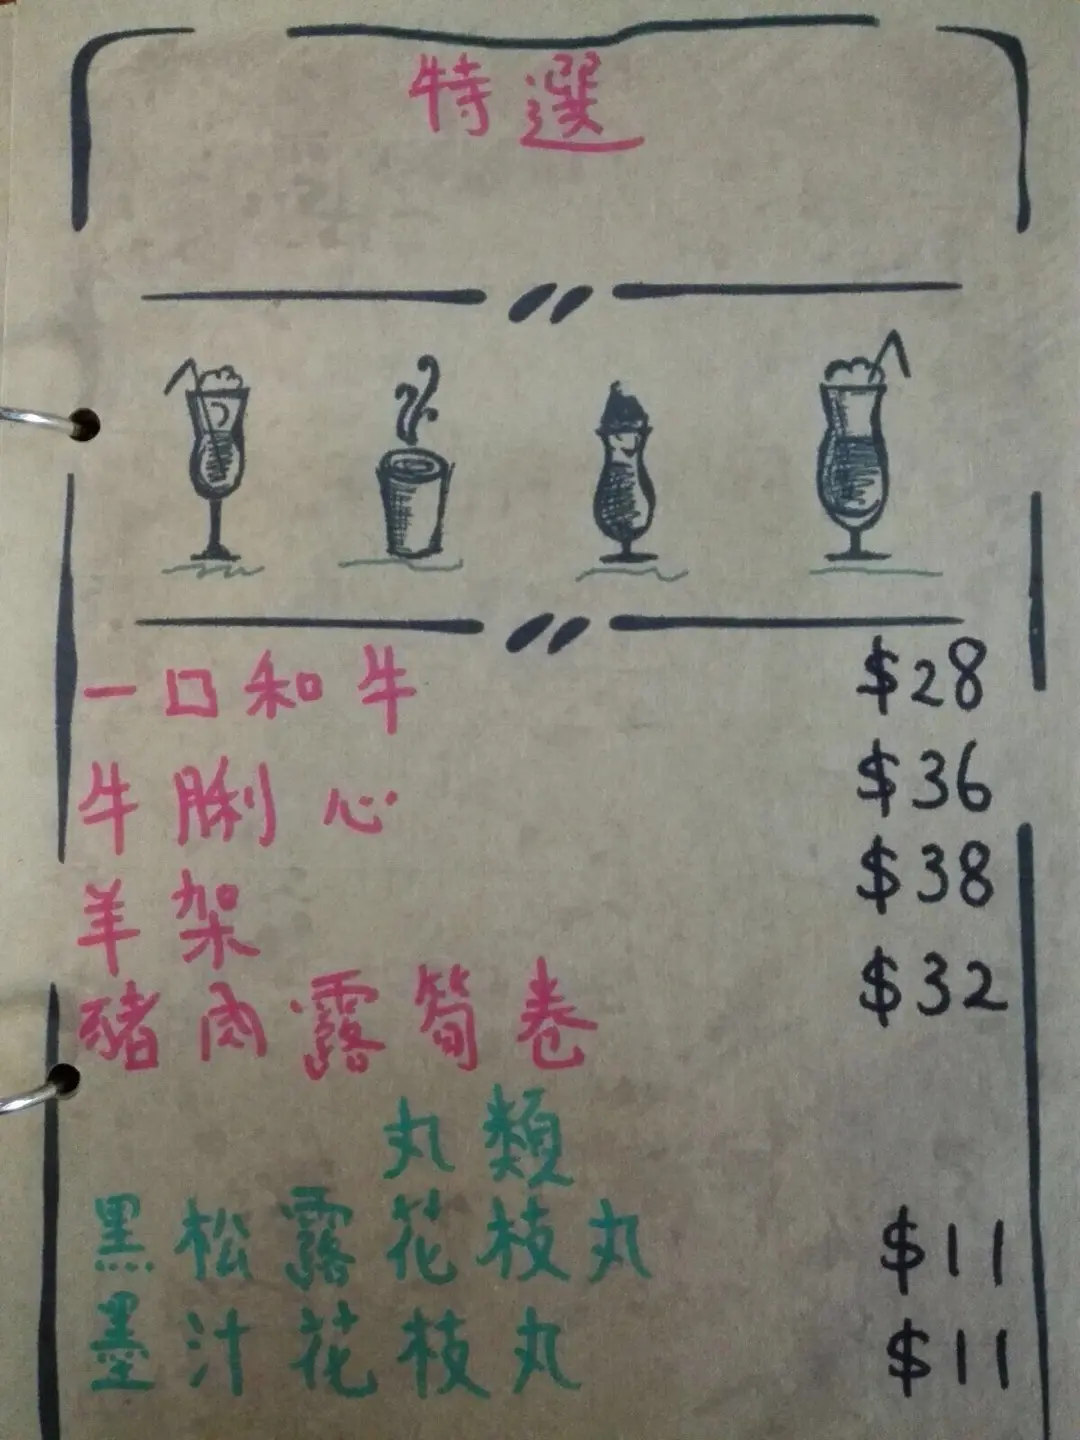 特選
一口和牛 $28
牛脷心 $36
羊架 $38
豬肉露筍卷 $32
丸類
黑松露花枝丸 $11
墨汁花枝丸 $11